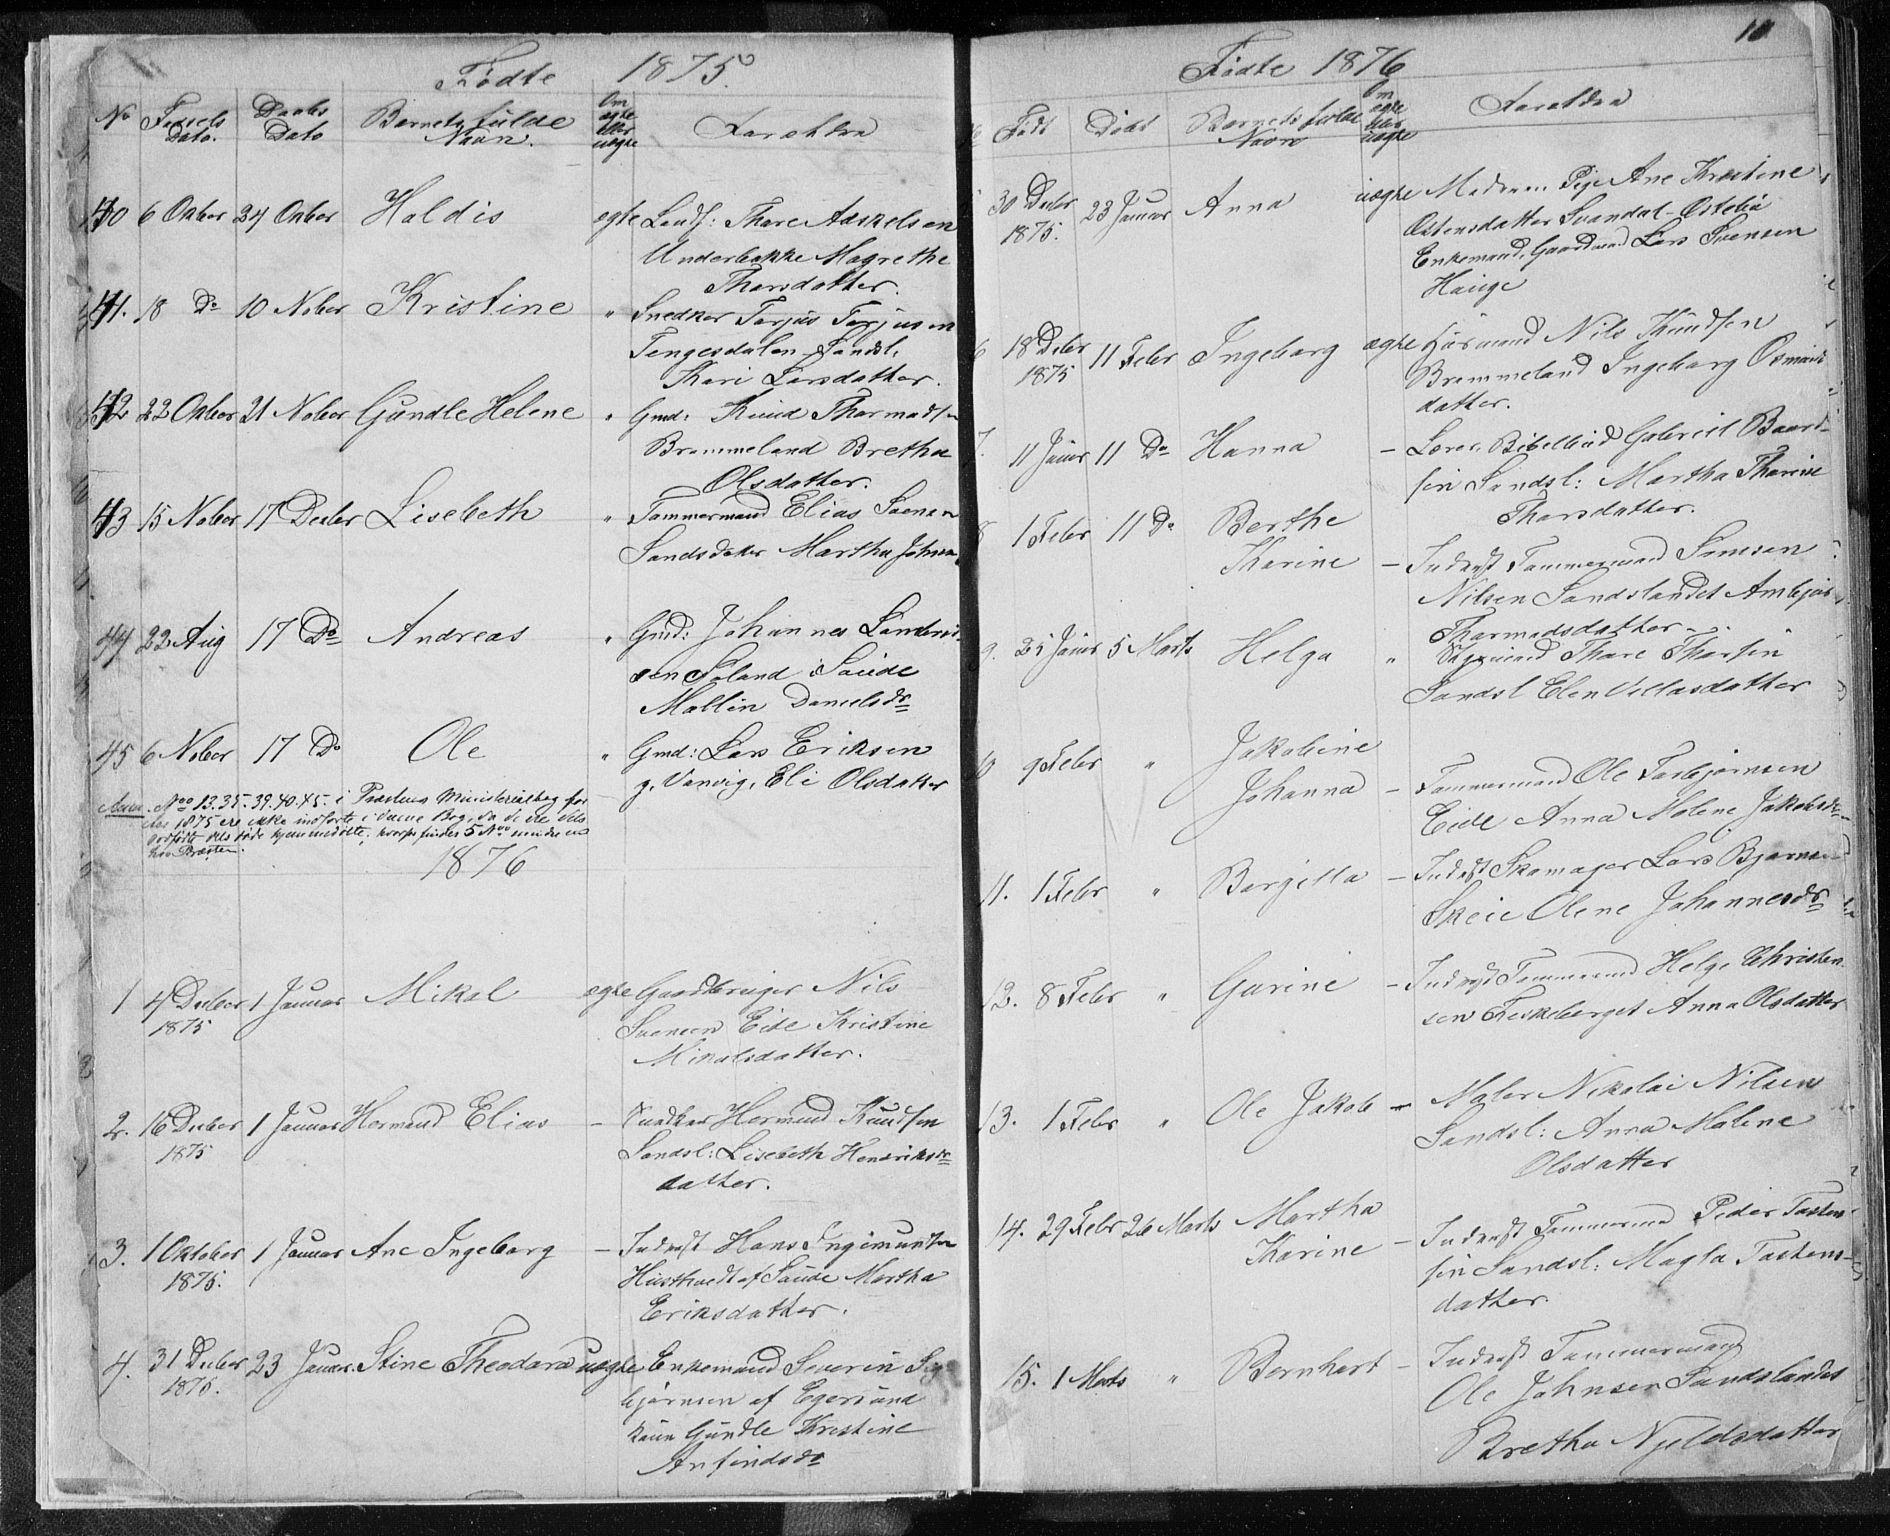 Fødte 1875.
No Fødsels Dato. Daabs Dato Barnets fulde Navn. Om ægte eller uægte Forældre
40 6 Oktbor 24 Oktbor Haldis egte Landh: Thore Aaskelsen
Underbakke Magrethe
Thorsdatter.
41. 18 Do 10 Nobor Kristine " Snedker Torjus Torjusen
Tengesdalen Sandsl.
Kari Larsdatter.
42 22 Oktbor 21 Nobor Gundle Helene " Gmd: Knud Thormodsen
Brommeland Bretha
Olsdatter.
43 15 Nobor 17 Decbr Lisebeth " Tømmermand Elias Svensen
Sandsl Martha Johns
44 22 Aug 17 Do Andreas " Gmd: Johannes
sen Søland i Saude
Mallin Danielsdr
45 6 Nobor 17 Do Ole " Gmd: Lars Eriksen
g. Vanvig, Eli Olsdatter
Anm. Noo 13.35.39.40.45. i Præstens Ministerialbog for
Aar 1875 ere ikke indførte i denne Bog, da de ere dels
dels døde hjemmedøbte, hvorfor findes 5 Noo mindre end
hos Præsten.
1876
1 4 Decbor 1875 1 Januar Mikal egte Gaardbruger Nils
Svensen Eide Kristine
Mikalsdatter.
2. 16 Decbor 1875 1 Januar Hermand Elias — Snedker Hermand Knudsen
Sandsl: Lisebeth Hendriks
datter.
3. 1 Oktober 1875. 1 Januar Ane Ingeborg — Inderst Hans Ingimundsen
Hustvedt af Saude Martha
Eriksdatter.
4. 31 Decbor 1875. 23 Januar. Stine Theodora uegte Enkemand Severin Sig
bjørnsen af Egersund
Gundle Kristine
Anfindsdr
10
Fødte 1876
Født Døbt Barnets fulde Navn Om egte eller uægte Forældre
30 Decbr 1875. 23 Januar Anna uægte Moderen Pige Ane Kristine
Østensdatter Svandal-Østebø
Enkemand, Gaardmand Lars Svensen
Hauge
6 18 Decbr 1875 11 Febr Ingeborg ægte Husmand Nils Knudsen
Brommeland Ingeborg Osmunds
datter.
7. 11 Januar 11 Do Hanna — Lærer, Bibelbud Gabriel Baard-
sen Sandsl: Martha Thorine
Thorsdatter.
8 1 Febr 11 Do Berthe
Karine — Inderst Tømmermand Samson
Nilsen Sandslandet Ambjør
Thormodsdatter
9. 25 Januar 5 Marts Helga " Thore Thorsen
Sandsl Elen Villasdatter
10 9 Febr " Jakobine
Johanna — Tømmermand Ole Torbjørnsen
Eide Anna Malene Jakobsdr
11. 1 Febr " Bergitta — Inderst Skomager Lars Bjørnsen
Skeie Olene Johannesdr
12. 8 Febr " Gurine — Inderst Tømmermand Helge Christen-
sen Feskeberget Anna Olsdatter
13. 1 Febr " Ole Jakob — Maler Nikolai Nilsen
Sandsl: Anna Malene
Olsdatter
14. 29 Febr 26 Marts Martha
Karine — Inderst Tømmermand Peder Tosten-
sen Sandsl: Magla Tostens-
datter.
15. 1 Marts " Bernhart — Inderst Tømmermand
Ole Johnsen Sandslandet
Bretha Njeldsdatter